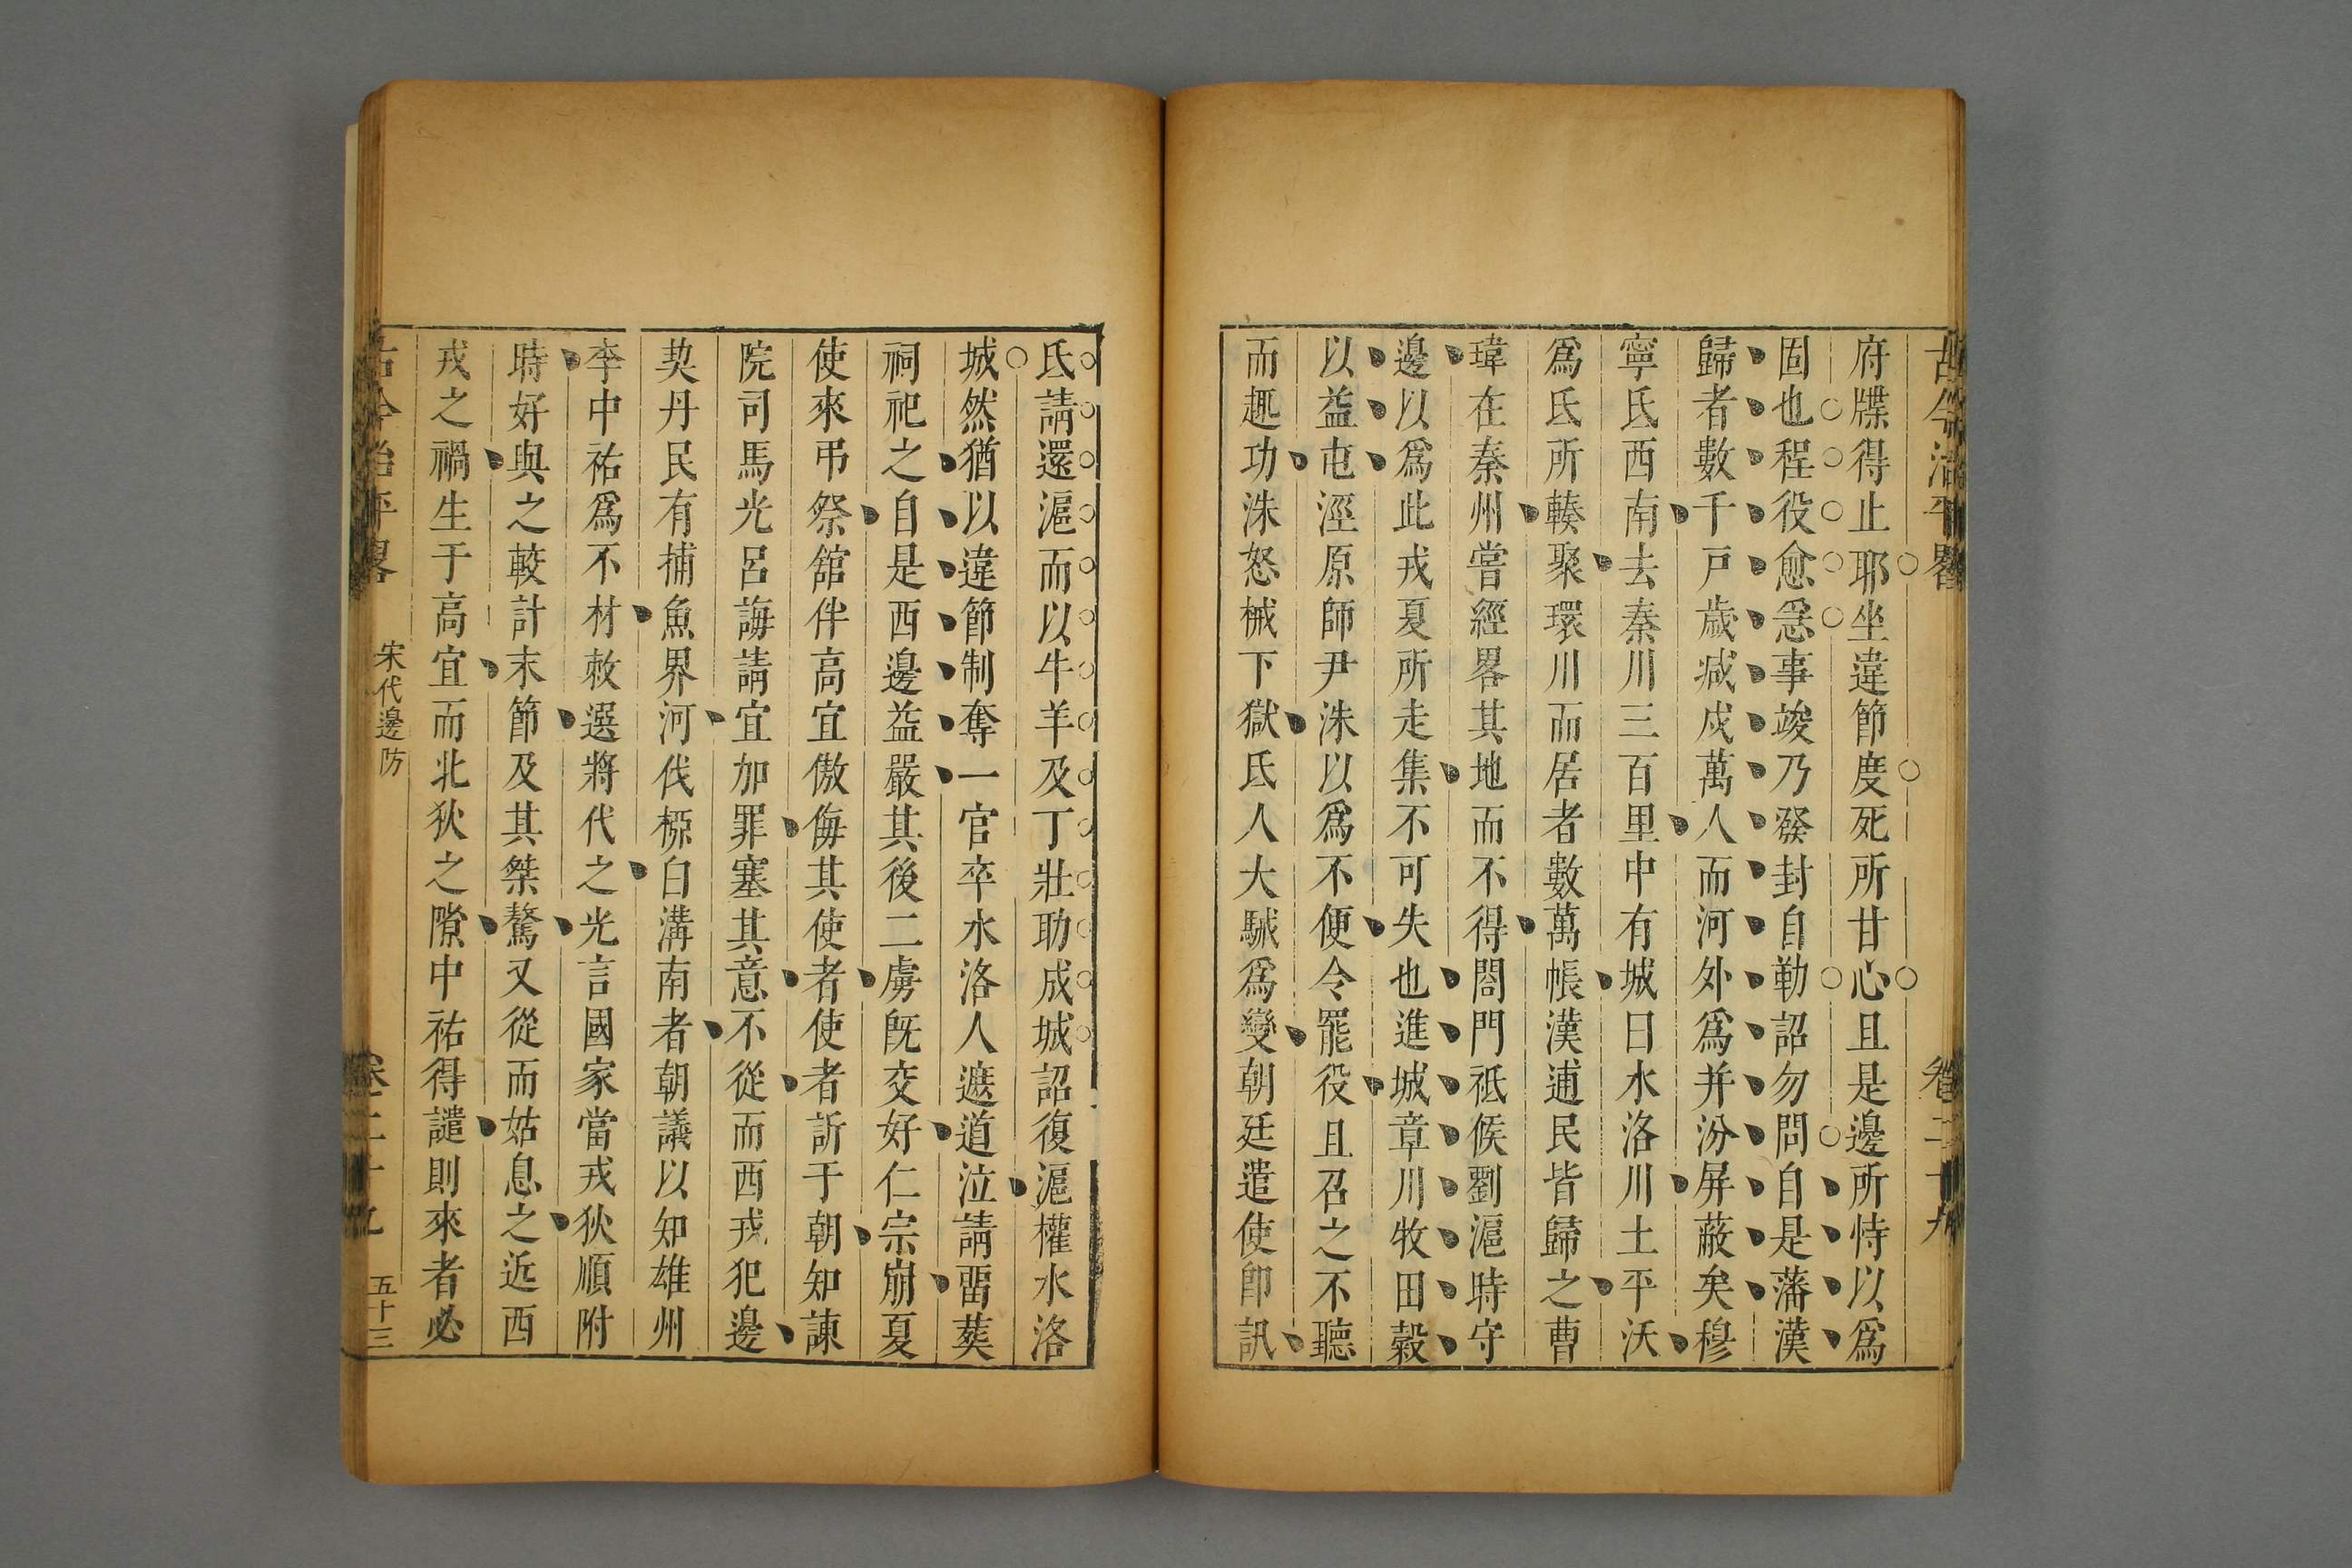 古今治平畧 卷二十九
府牒得止耶坐違節度死所甘心且是邊所恃以爲
固也程役愈急事竣乃發封自勒詔勿問自是藩漢
歸者數千戸歲減戍萬人而河外爲并汾屏蔽矣穆
寧氐西南去秦川三百里中有城曰水洛川土平沃
爲氐所輳聚環川而居者數萬帳漢逋民皆歸之曹
瑋在秦州嘗經畧其地而不得閤門祗候劉滬時守
邊以爲此戎夏所走集不可失也進城章川牧田穀
以益屯涇原師尹洙以爲不便令罷役且召之不聽
而趣功洙怒械下獄氐人大駴爲變朝廷遣使卽訊
氐請還滬而以牛羊及丁壯助成城詔復滬權水洛
城然猶以違節制奪一官卒水洛人遮道泣請畱葬
祠祀之自是西邊益嚴其後二虜旣交好仁宗崩夏
使來弔祭舘伴高宜傲侮其使者使者訢于朝知諌
院司馬光呂誨請宜加罪塞其意不從而西戎犯邊
契丹民有捕魚界河伐桺白溝南者朝議以知雄州
李中祐爲不材敕選將代之光言國家當戎狄順附
時好與之較計末節及其桀驁又從而姑息之近西
戎之禍生于高宜而北狄之隙中祐得譴則來者必
古今治平畧 宋代邊防 卷二十九 五十三